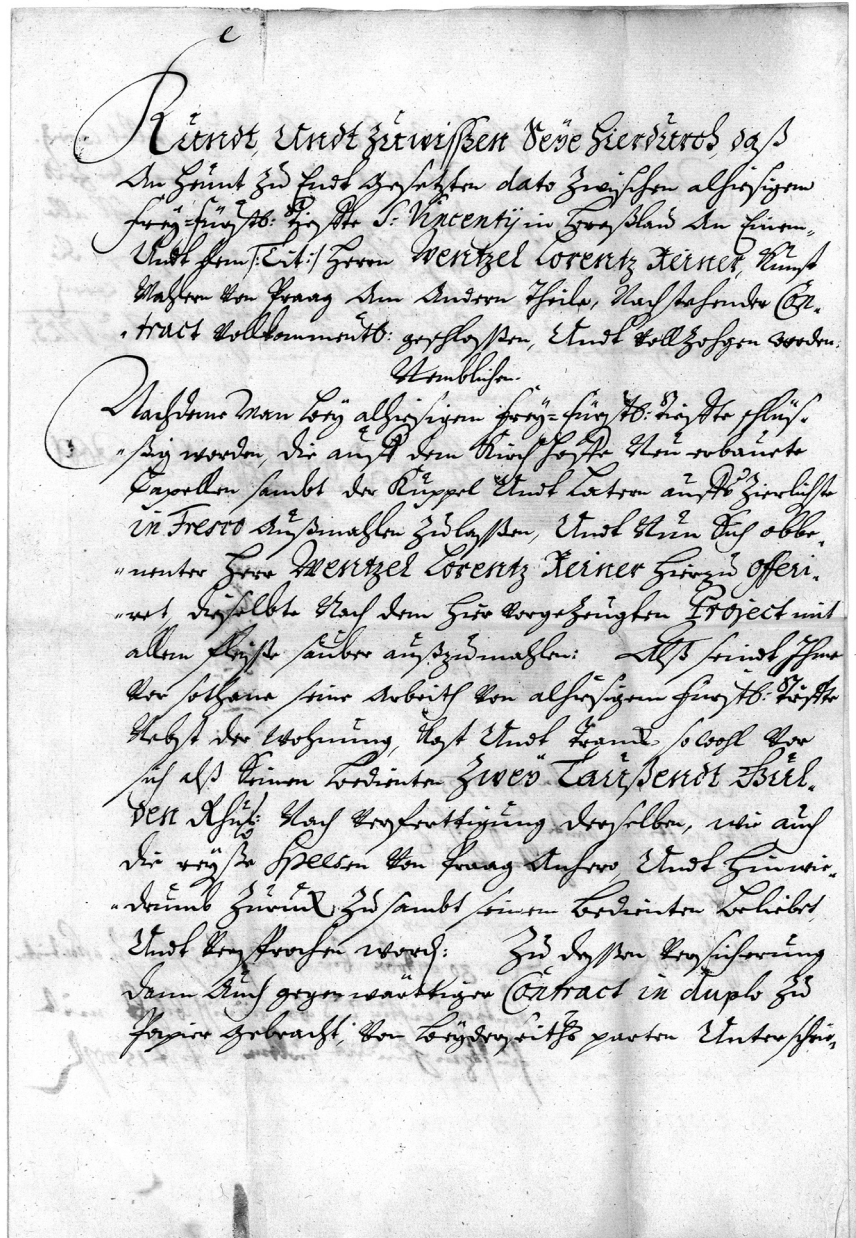 Kundt, Undt Zuwißen Seÿe hierdurch, daß
An heünt zu Endt gesetzten dato zwischen alhiesigem
freÿ-fürstl: Stiffte S: Vincentÿ in Breßlau An Einem-
Undt dem /:Tit:/ Herrn Wentzel Lorentz Reiner, Kunst
Mahlern Von Praag Am Andern Theile, Nachstehender Con-
-tract Vollkommentl: geschloßen, Undt Vollzohgen worden:
Nemblichen.
Nachdeme Man beÿ alhiesigem freÿ-fürstl: Stiffte schlüs-
-ßig worden, die auff dem Kirchhoffe Neu erbauete
Capellen sambt der Kuppel Undt Latern auffs Zierlichste
in Fresco Außmahlen zulaßen, Undt Nun Sich obbe-
-nenter Herr Wentzel Lorentz Reiner hierzu offeri-
-ret, dieselbte Nach dem hier vorgezeugten Project mit
allem fleiße sauber außzumahlen: Alß seindt Ihme
Vor sothane seine Arbeith Von alhiesigem fürstl: Stiffte
Nebst der Wohnung, Kost Undt Tranck sowohl Vor
sich alß Seinen Bedienten Zweÿ Taußendt Gül-
den Rheinl: Nach Verferttigung derselben, wie auch
die reÿße Speesen Von Praag Anhero, Undt hinwie-
-derumb Zuruck, Zusambt seinem Bedienten beliebet,
Undt versprochen word: Zu deßen Versicherung
dann Auch gegenwärttiger Contract in duplo zu
Papier gebracht, Von beÿderseiths parten Unterschrie-